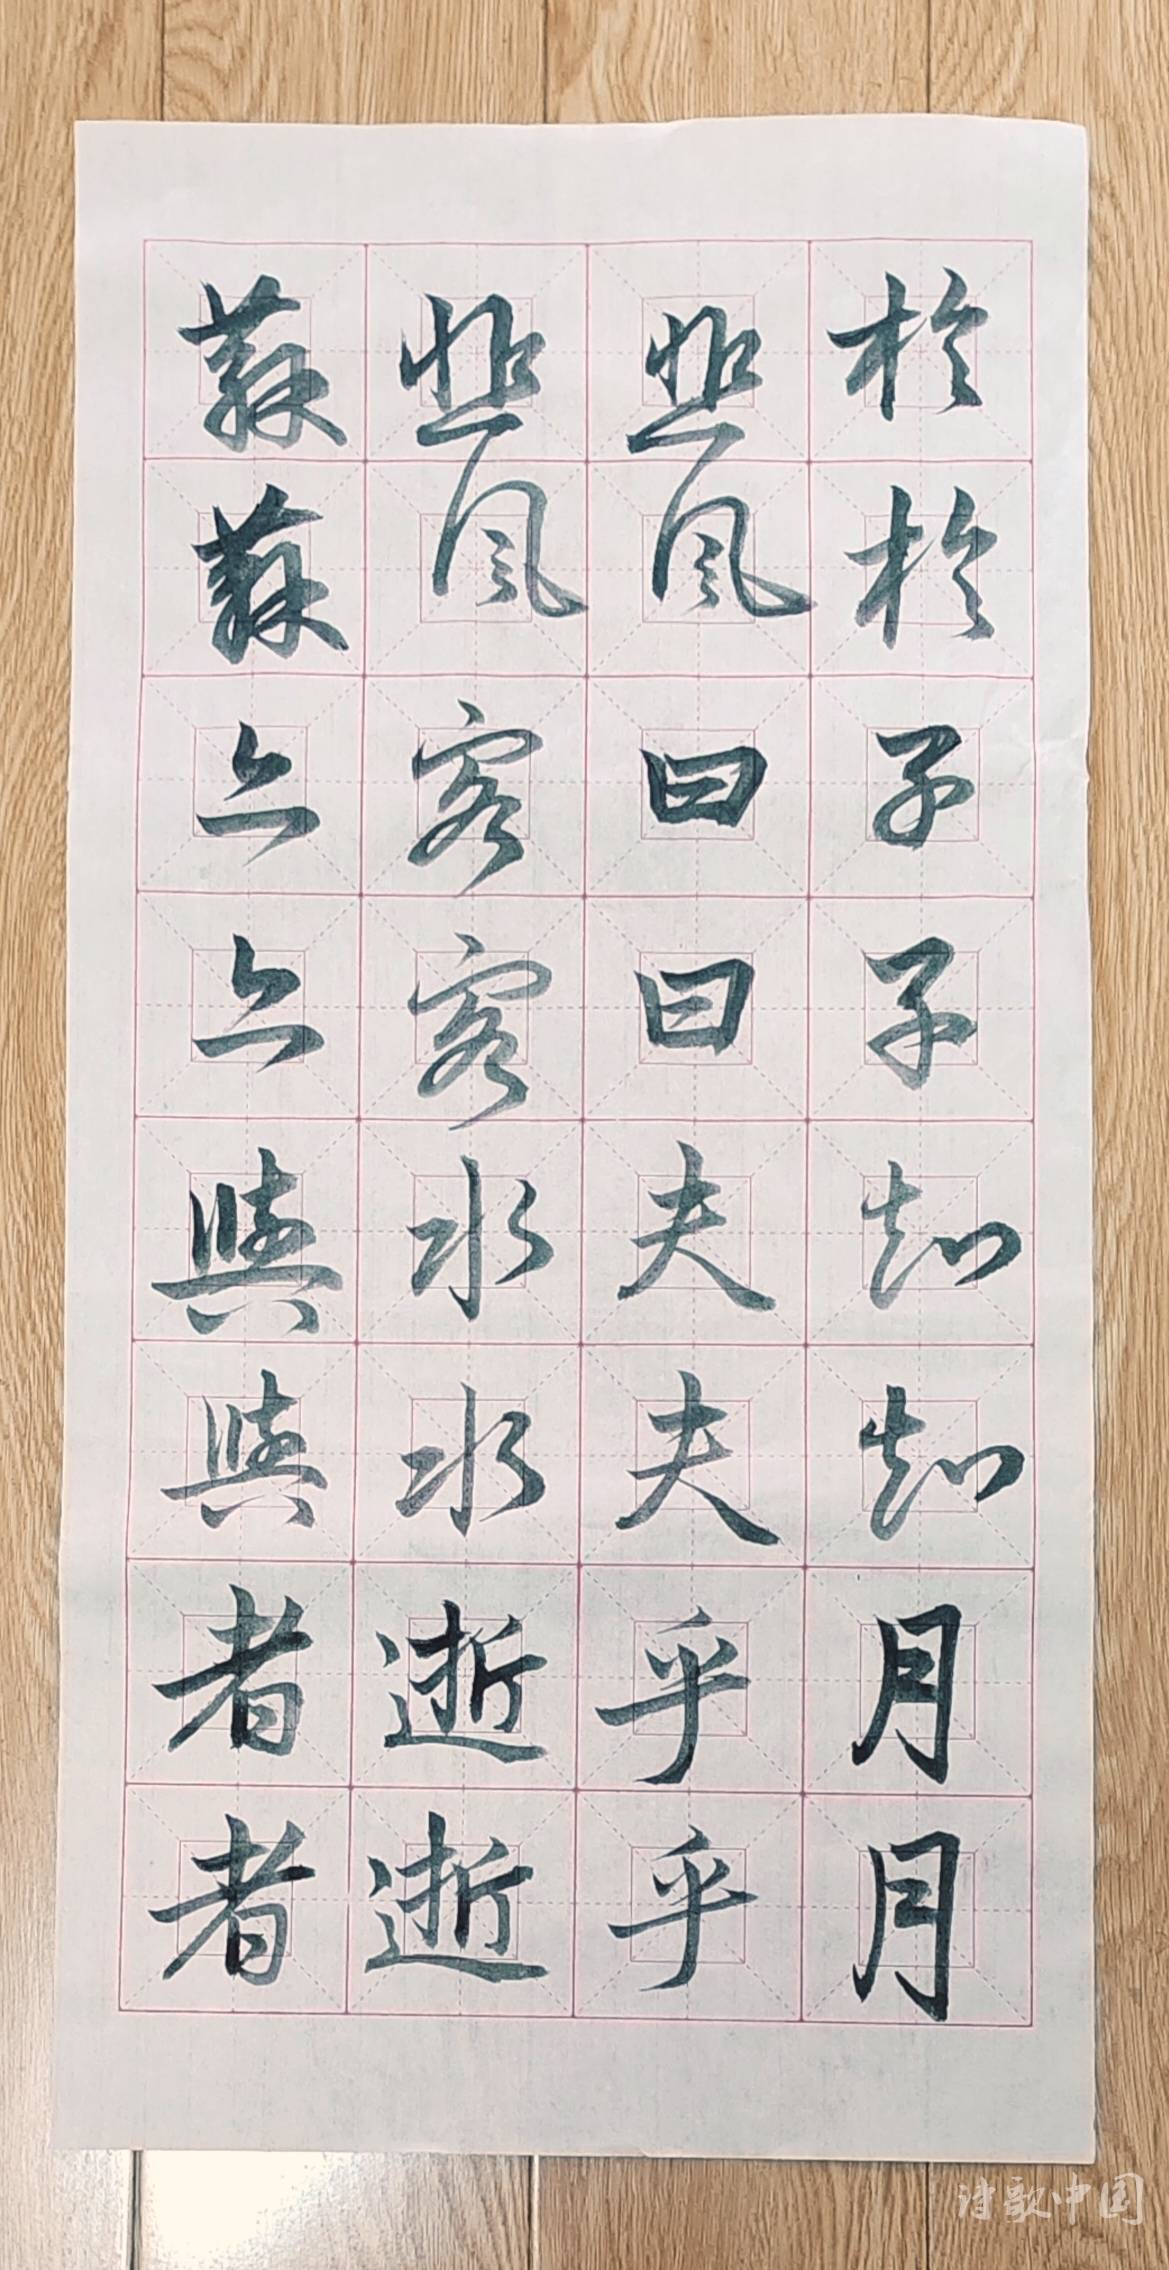 於悲悲蘇
於風風蘇
子曰客亦
子曰客亦
知夫水與
知夫水與
月乎逝者
月乎逝者
诗歌中国